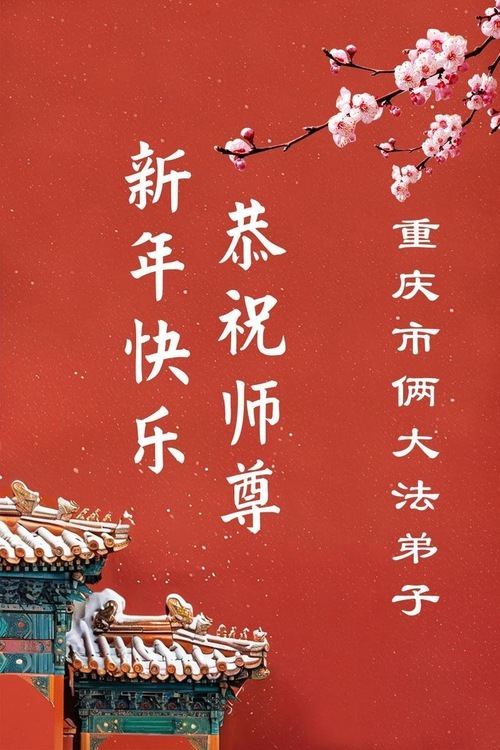 恭祝师尊
新年快乐
重庆市俩大法弟子